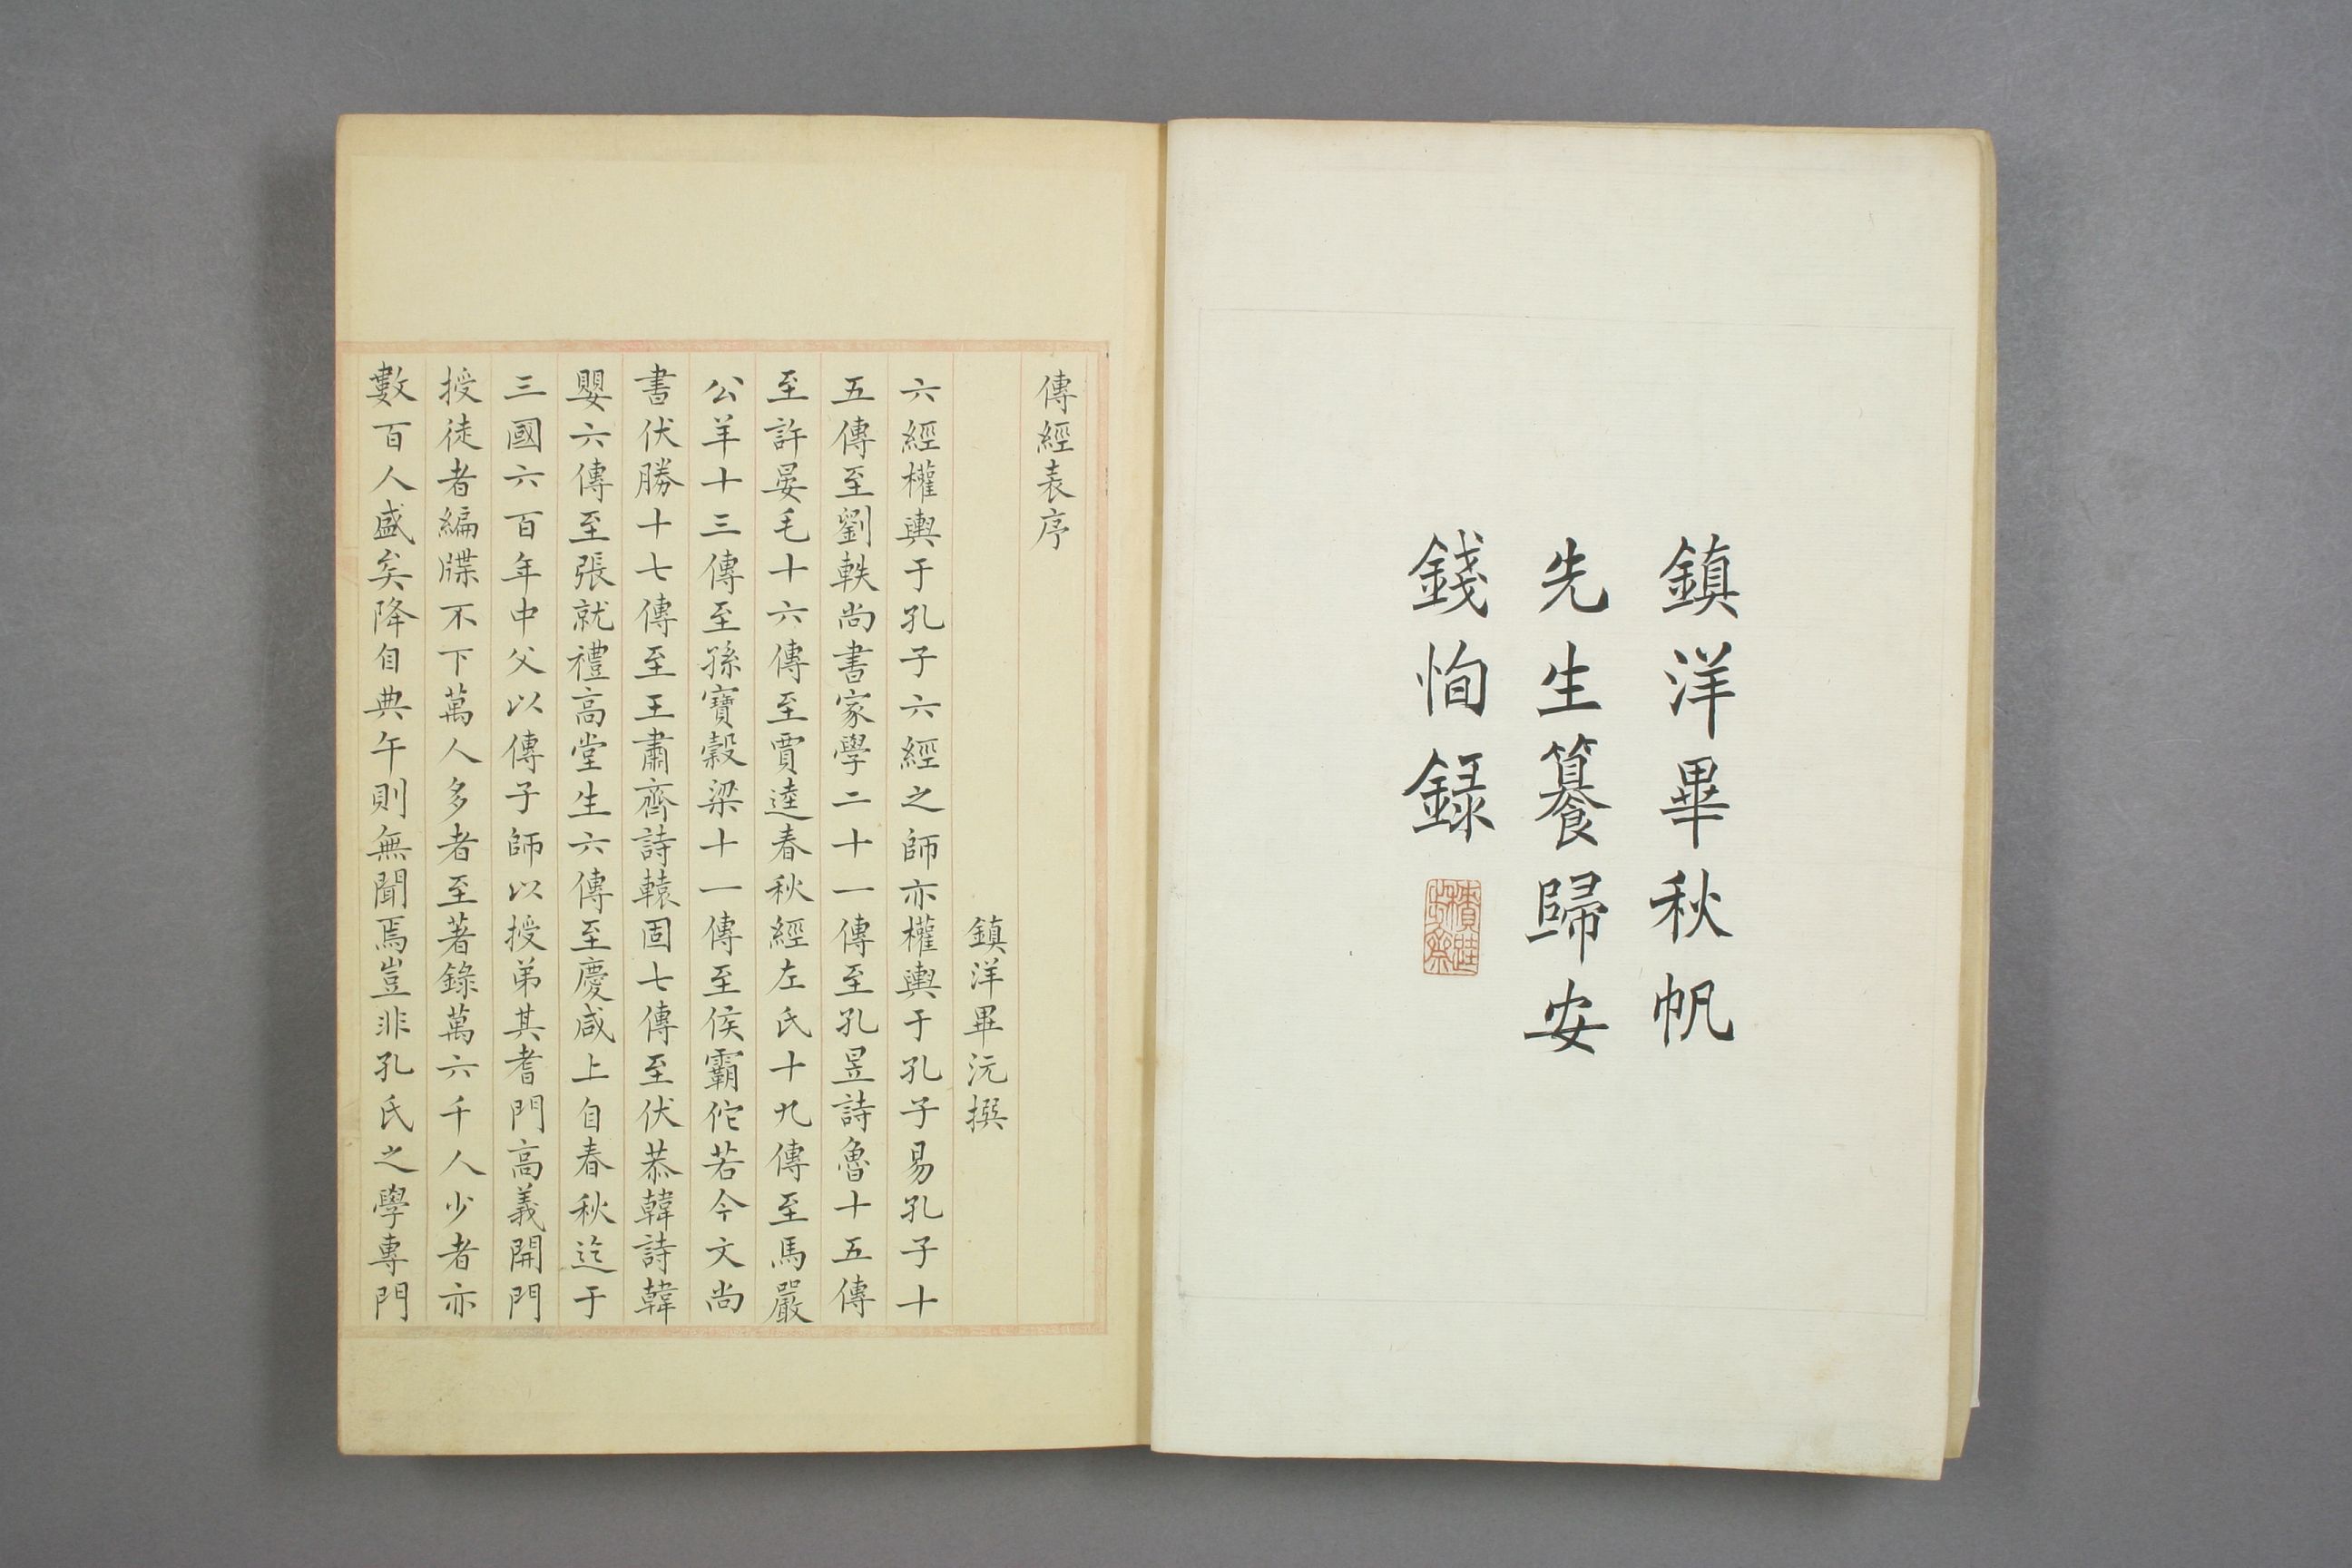 鎮洋畢秋帆
先生籑歸安
錢恂録
傳經表序
鎮洋畢沅撰
六經權輿于孔子六經之師亦權輿于孔子易孔子十
五傳至劉軼尚書家學二十一傳至孔昱詩魯十五傳
至許晏毛十六傳至賈逵春秋經左氏十九傳至馬嚴
公羊十三傳至孫寶穀梁十一傳至侯霸佗若今文尚
書伏勝十七傳至王肅齊詩轅固七傳至伏恭韓詩韓
嬰六傳至張就禮高堂生六傳至慶咸上自春秋迄于
三國六百年中父以傳子師以授弟其耆門高義開門
授徒者編牒不下萬人多者至著錄萬六千人少者亦
數百人盛矣降自典午則無聞焉豈非孔氏之學專門